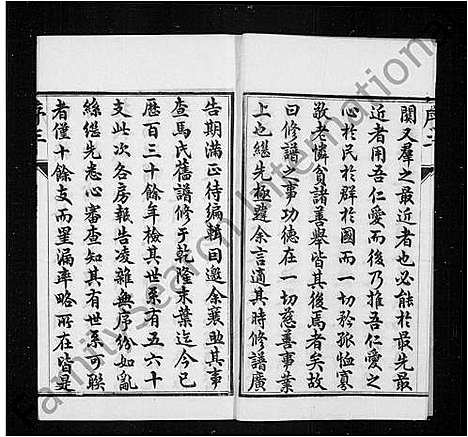 關又羣之最近者也必能於最先最
近者用吾仁愛而後乃推吾仁愛之
心於民於群於國而一切矜孤恤寡
敬老憐貧諸善舉皆其後焉者矣故
曰修譜之事功德在一切慈善事業
上也繼先極韙余言適其時修譜廣
告期滿正待編輯因邀余襄助其事
查馬氏舊譜修于乾隆末葉迄今已
歷百三十餘年檢其世系有五六十
支此次各房報告凌雜無序份如亂
絲繼先悉心審查知其有世系可聯
者僅十餘支而罣漏率略所在皆是
序三
FamilySearch International